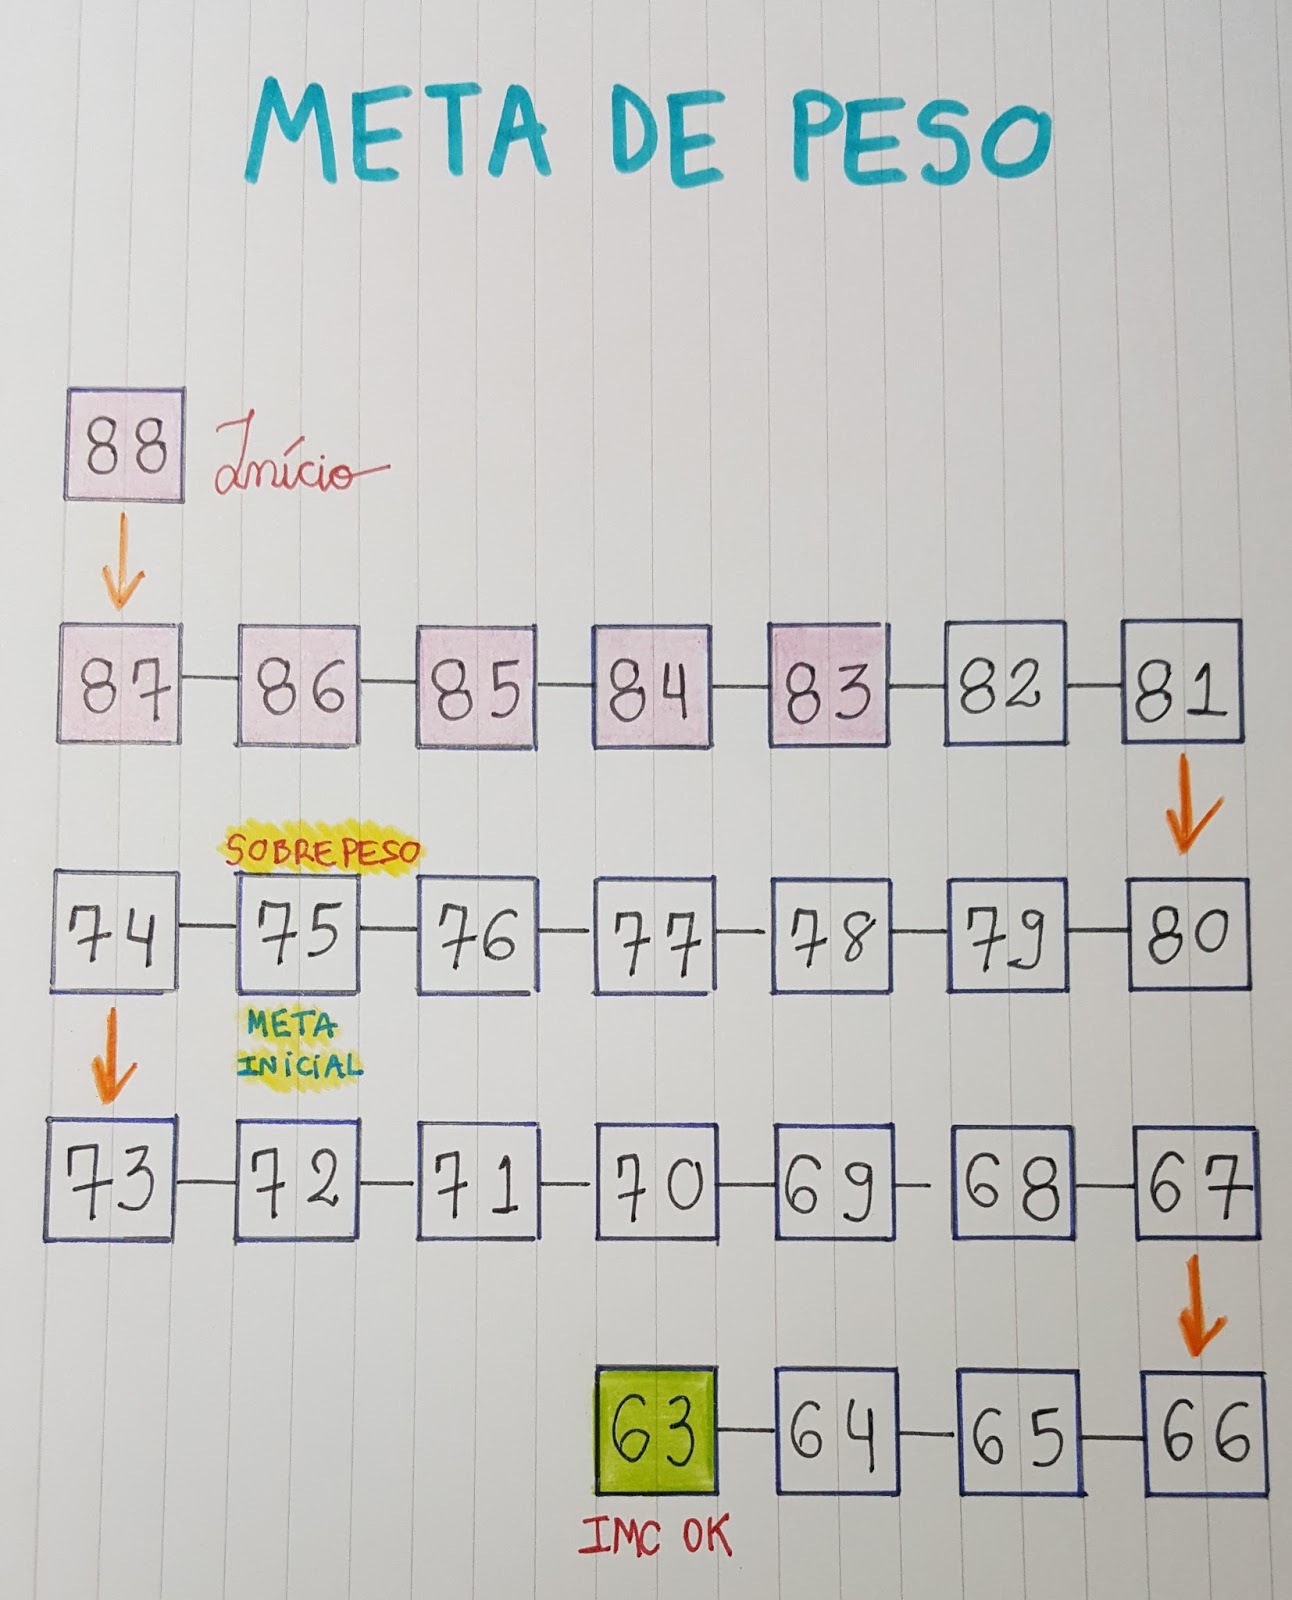 META DE PESO
88 Início
87 86 85 84 83 82 81
SOBREPESO
74 75 76 77 78 79 80
META
INiCiAL
73 72 71 70 69 68 67
63 64 65 66
IMC OK